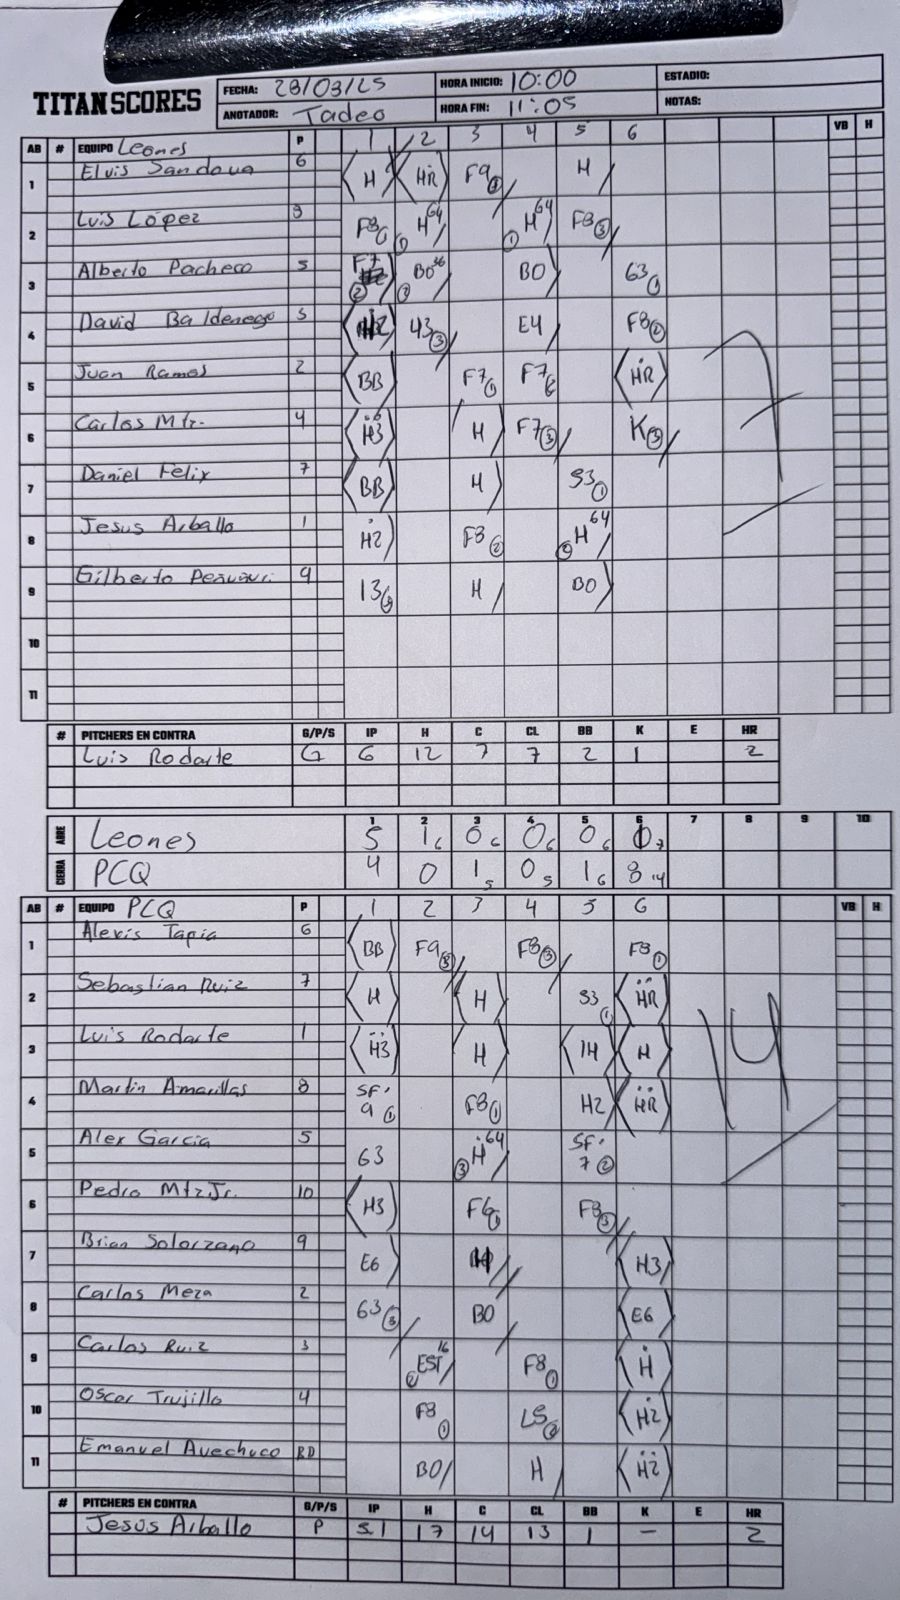 TITAN SCORES
FECHA: 28/03/25 HORA INICIO: 10:00 ESTADIO:
ANOTADOR: Tadeo HORA FIN: 11:05 NOTAS:
AB # EQUIPO Leones P 1 2 3 4 5 6 VB H
1 Elvis Sandova 6 H HR F9 H
2 Luis López 8 F8 1 H 64 1 H 64 F8 3
3 Alberto Pacheco 5 F7 2 BO 36 BO 63 1
4 David Baldenego 5 43 3 E4 F8 2
5 Juan Ramos 2 BB F7 1 F7 2 HR
6 Carlos Mtz. 4 H3 H F7 3 K 3
7 Daniel Felix 7 BB H 53 1
8 Jesus Arballo 1 H2 F8 2 2 H 64
9 Gilberto 9 13 3 H BO
10
11
7
# PITCHERS EN CONTRA G/P/S IP H C CL BB K E HR
Luis Rodarte G 6 12 7 7 2 1 2
1 2 3 4 5 6 7 8 9 10
ABRE Leones 5 1 6 0 6 0 6 0 6 1 7
CIERRA PCQ 4 0 1 5 0 5 1 6 8 14
AB # EQUIPO PCQ P 1 2 3 4 5 6 VB H
1 Alexis Tapia 6 BB F9 3 F8 3 F8 1
2 Sebastian Ruiz 7 H H 53 1 HR
3 Luis Rodarte 1 H3 H 1H H
4 Martin Amarillas 8 SF 9 1 F8 1 H2 HR
5 Alex Garcia 5 63 3 H 64 SF 7 2
6 Pedro Mtz Jr. 10 H3 F6 F8 3
7 Brian Solorzano 9 E6 H3
8 Carlos Meza 2 63 3 BO E6
9 Carlos Ruiz 3 2 EST 16 F8 1 H
10 Oscar Trujillo 4 F8 1 L5 2 H2
11 Emanuel Avechuco BD BO H H2
14
# PITCHERS EN CONTRA G/P/S IP H C CL BB K E HR
Jesus Arballo P 5.1 17 14 13 1 - 2